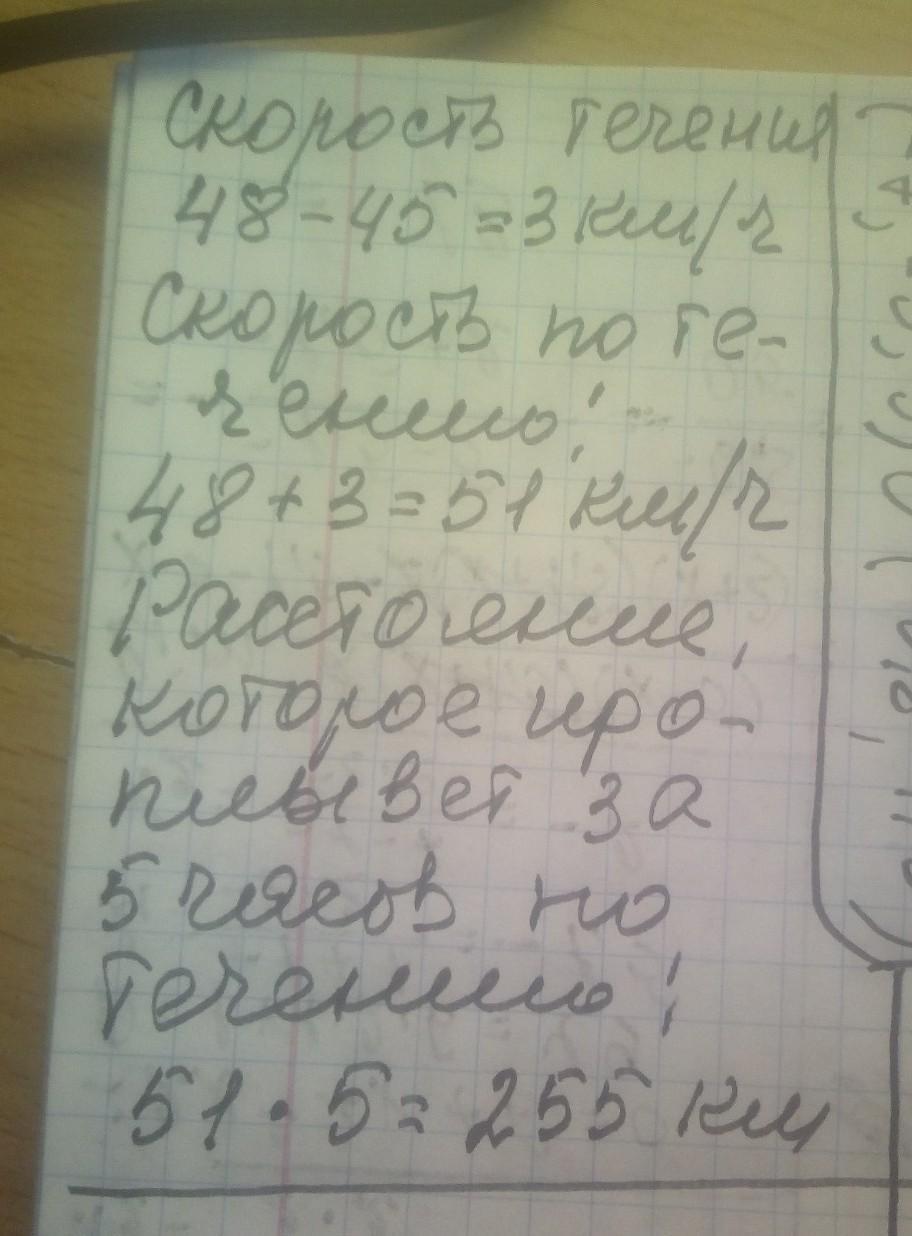 Скорость течения
48 - 45 = 3 км/ч
Скорость по те-
чению:
48 + 3 = 51 км/ч
Расстояние,
которое про-
плывет за
5 часов по
течению:
51 · 5 = 255 км